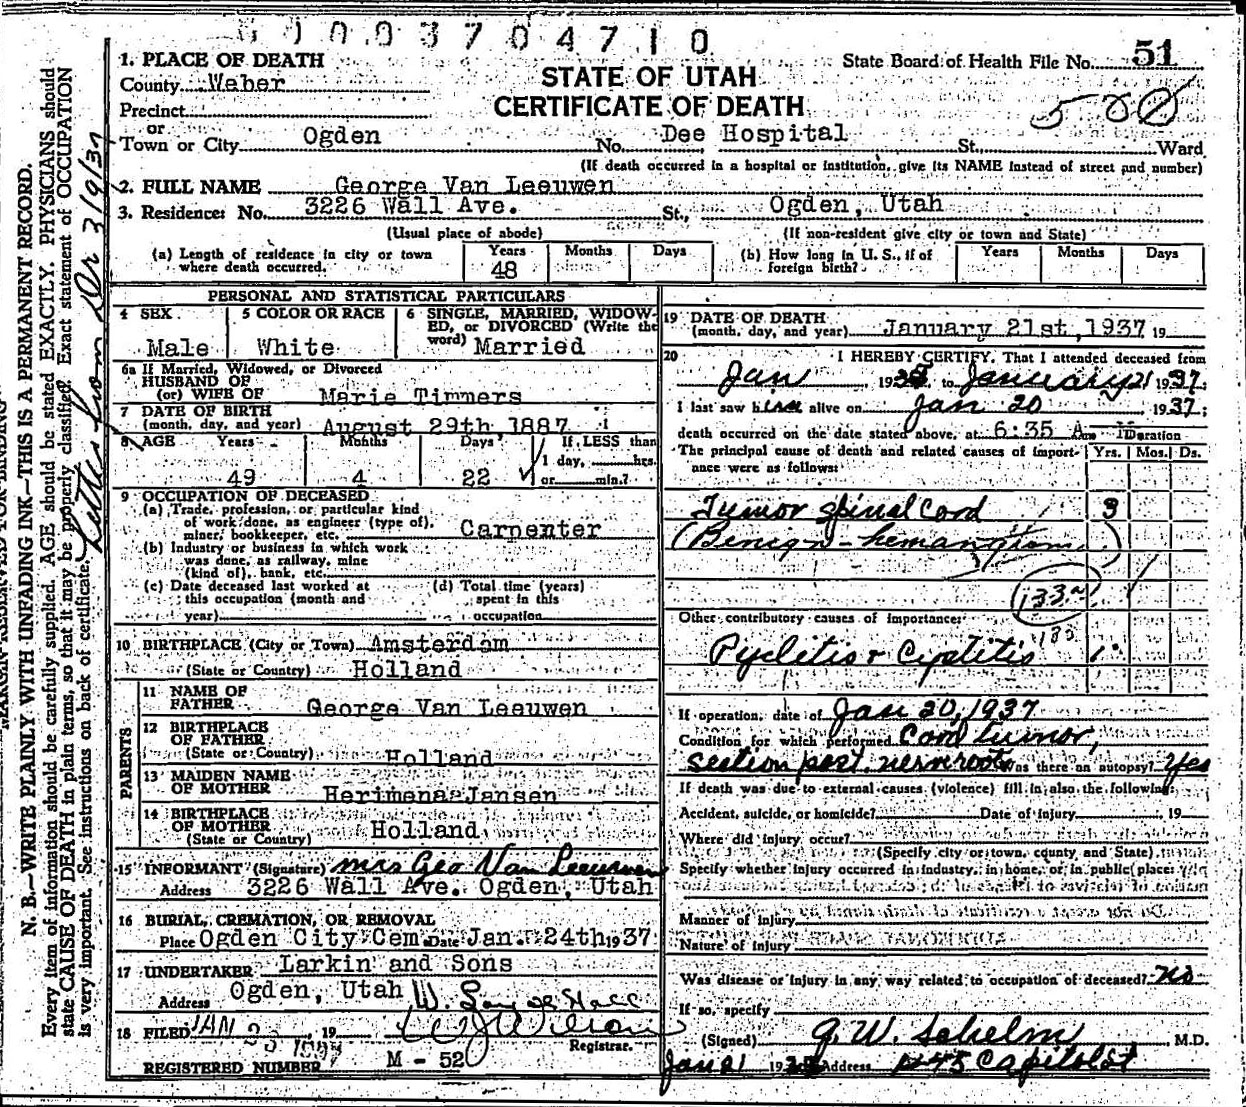 1003704710
1. PLACE OF DEATH
County Weber
Precinct
or
Town or City Ogden
STATE OF UTAH
CERTIFICATE OF DEATH
State Board of Health File No. 51
580
No. Dee Hospital St., Ward
(If death occurred in a hospital or institution, give its NAME instead of street and number)
2. FULL NAME George Van Leeuwen
3. Residence: No. 3226 Wall Ave. St., Ogden, Utah
(Usual place of abode) (If non-resident give city or town and State)
(a) Length of residence in city or town where death occurred. Years 48 Months Days
(b) How long in U. S., if of foreign birth? Years Months Days
PERSONAL AND STATISTICAL PARTICULARS
4 SEX Male
5 COLOR OR RACE White
6 SINGLE, MARRIED, WIDOWED, or DIVORCED (Write the word) Married
6a If Married, Widowed, or Divorced
HUSBAND OF
(or) WIFE OF Marie Timmers
7 DATE OF BIRTH
(month, day, and year) August 29th 1887
8 AGE Years 49 Months 4 Days 22 If LESS than 1 day, hrs. or min.?
9 OCCUPATION OF DECEASED
(a) Trade, profession, or particular kind
of work done, as engineer (type of),
miner, bookkeeper, etc. Carpenter
(b) Industry or business in which work
was done, as railway, mine
(kind of), bank, etc.
(c) Date deceased last worked at
this occupation (month and
year)
(d) Total time (years)
spent in this
occupation
10 BIRTHPLACE (City or Town) Amsterdam
(State or Country) Holland
PARENTS
11 NAME OF
FATHER George Van Leeuwen
12 BIRTHPLACE
OF FATHER
(State or Country) Holland
13 MAIDEN NAME
OF MOTHER Herimena Jansen
14 BIRTHPLACE
OF MOTHER Holland
(State or Country)
15 INFORMANT (Signature) Mrs Geo Van Leeuwen
Address 3226 Wall Ave. Ogden, Utah
16 BURIAL, CREMATION, OR REMOVAL
Place Ogden City Cem. Date Jan. 24th 1937
17 UNDERTAKER Larkin and Sons
Address Ogden, Utah
18 FILED JAN 23 1937, 19
Wilson
Registrar.
REGISTERED NUMBER M - 520
19 DATE OF DEATH
(month, day, and year) January 21st, 1937 19
20 I HEREBY CERTIFY, That I attended deceased from
Jan 193 to January 21 1937;
I last saw him alive on Jan 20 1937;
death occurred on the date stated above, at 6:35 A M
Duration
The principal cause of death and related causes of importance were as follows: Yrs. Mos. Ds.
Tumor spinal Cord 3
(Benign - hemangioma)
133
Other contributory causes of importance:
Pyelitis & Cystitis 1
If operation, date of Jan 20, 1937
Condition for which performed Cord tumor,
section post. nerve roots Was there an autopsy? Yes
If death was due to external causes (violence) fill in also the following:
Accident, suicide, or homicide? Date of injury , 19
Where did injury occur?
(Specify city or town, county and State)
Specify whether injury occurred in industry, in home, or in public place:
Manner of injury
Nature of injury
Was disease or injury in any way related to occupation of deceased? no
If so, specify
(Signed) G. W. Schelm M.D.
Jan 21 193 Address Capitol st
N. B.—WRITE PLAINLY WITH UNFADING INK—THIS IS A PERMANENT RECORD.
Every item of information should be carefully supplied. AGE should be stated EXACTLY. PHYSICIANS should
state CAUSE OF DEATH in plain terms, so that it may be properly classified. Exact statement of OCCUPATION
is very important. See instructions on back of certificate.
Letter from Dr 3/9/37